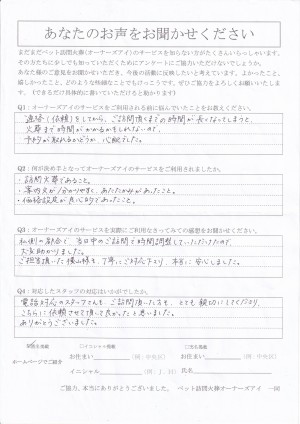 あなたのお声をお聞かせください
まだまだペット訪問火葬(オーナーズアイ)のサービスを知らない方がたくさんいらっしゃいます。
その方たちに少しでも知っていただくためにアンケートにご協力いただけないでしょうか。
あなた様のご意見をお聞かせいただき、今後の活動に反映したいと考えています。よかったこと、
嬉しかったこと、どのような些細なことでもけっこうです。ぜひご協力をよろしくお願いいたしま
す。(できるだけ具体的に書いていただけると助かります)
Q1：オーナーズアイのサービスをご利用される前に悩んでいたことをお教えください。
連絡(依頼)をしてから、ご訪問頂くまでの時間が長くなってしまうと、
火葬まで時間がかかるかもしれないので、
予約が取れるかどうか、心配でした。
Q2：何が決め手となってオーナーズアイのサービスをご利用されましたか。
・訪問火葬であること。
・案内文が分かりやすく、あたたかみがあったこと。
・価格設定が良心的であったこと。
Q3：オーナーズアイのサービスを実際にご利用なさってみての感想をお聞かせください。
私側の都合で、当日中のご訪問で時間調整していただけたので、
大変助かりました。
ご担当頂いた横山様も、丁寧にご対応下さり、本当に安心しました。
Q4：対応したスタッフの対応はいかがでしたか。
電話対応のスタッフさんも、ご訪問頂いた方も、とても親切にしてくださり、
こちらに依頼させて頂いて良かったと思いました。
ありがとうございました。
ホームページでご紹介
□イニシャル掲載
お住まい (例：中央区)
イニシャル (例：J．H)
お住まい (例：中央区)
氏名
ご協力、本当にありがとうございました。 ペット訪問火葬オーナーズアイ 一同